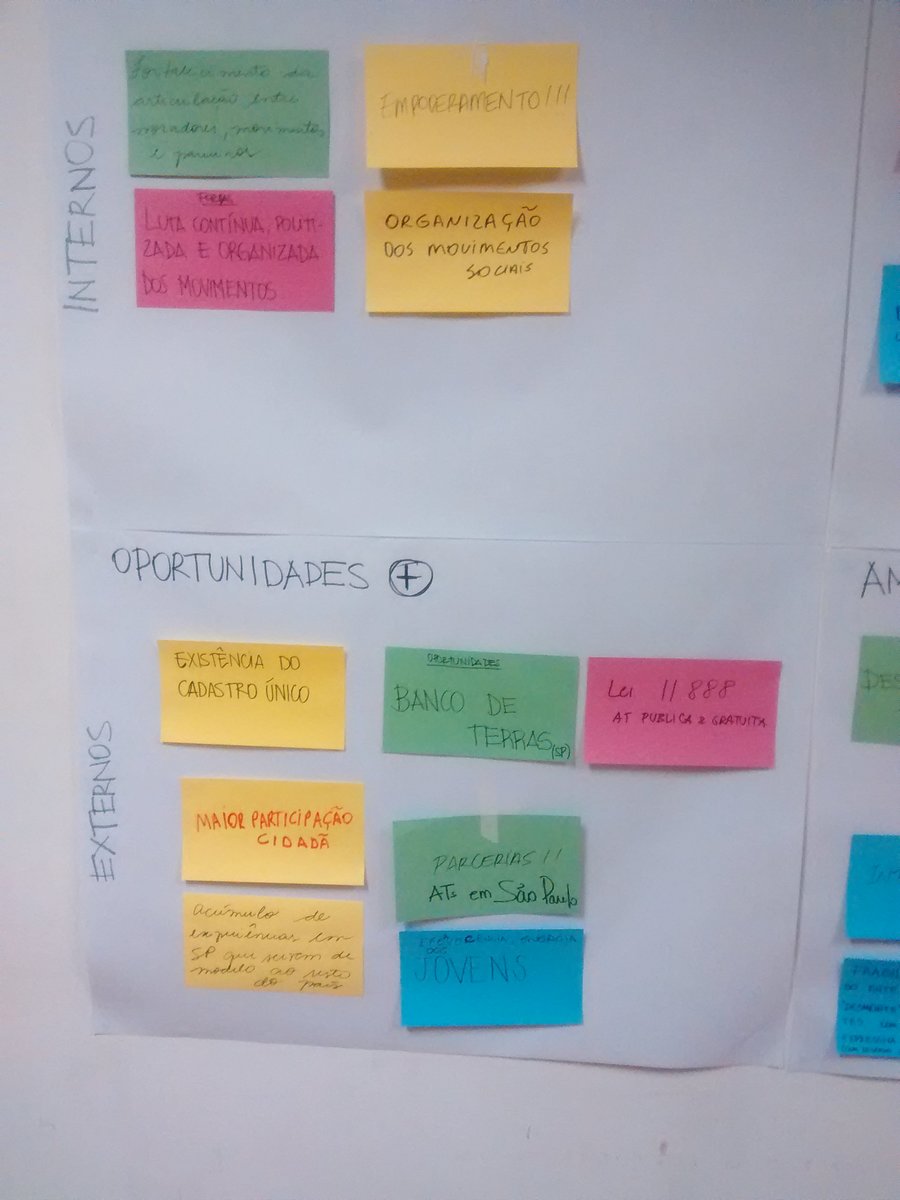 INTERNOS
Fortalecimento da
articulação entre
moradores, movimentos
e parceiros
EMPODERAMENTO!!!
FORÇAS
LUTA CONTÍNUA, POLITI-
ZADA E ORGANIZADA
DOS MOVIMENTOS
ORGANIZAÇÃO
DOS MOVIMENTOS
SOCIAIS
EXTERNOS
OPORTUNIDADES +
EXISTÊNCIA DO
CADASTRO ÚNICO
OPORTUNIDADES
BANCO DE
TERRAS (SP)
Lei 11 888
AT PUBLICA E GRATUITA
MAIOR PARTICIPAÇÃO
CIDADÃ
PARCERIAS!!
ATs em São Paulo
acúmulo de
experiências em
SP que servem de
modelo ao resto
do país
DOS
JOVENS
AM
DES